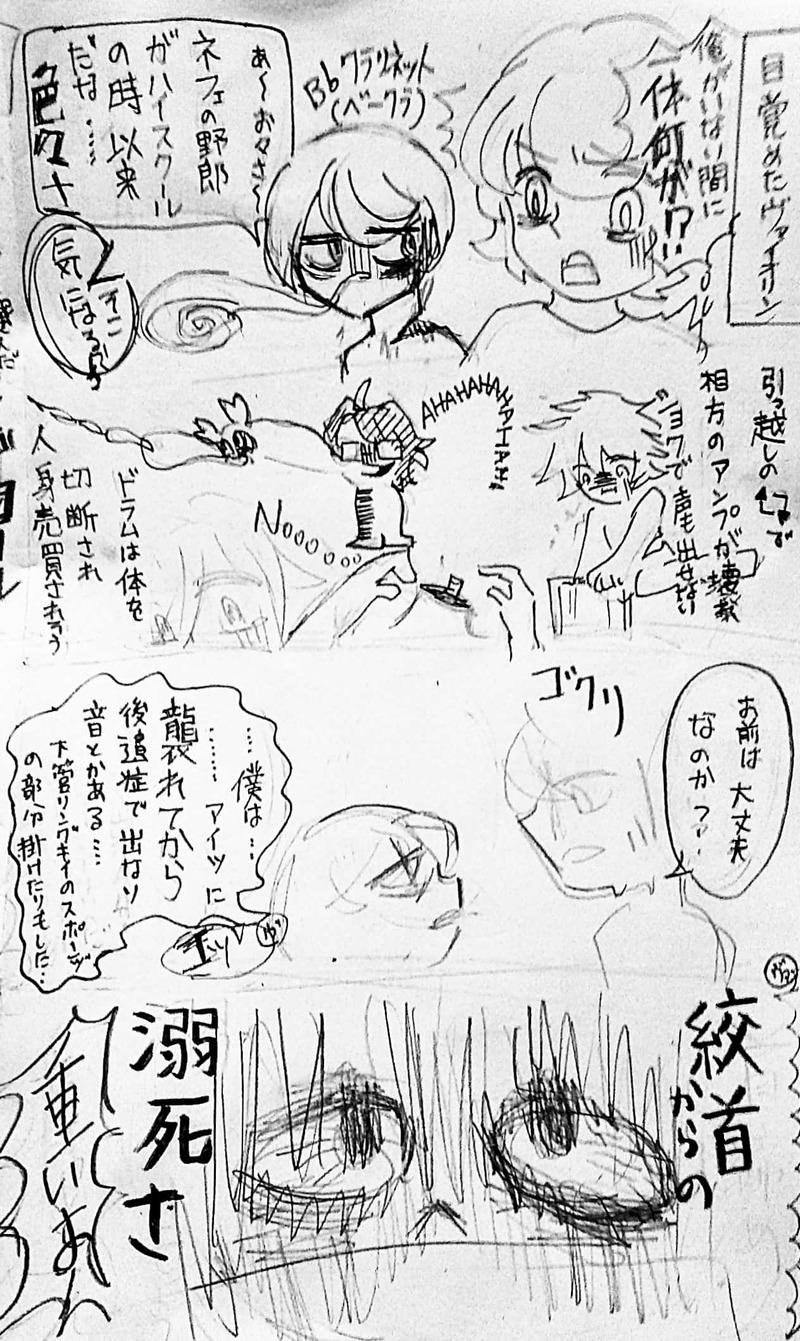 目覚めたヴァイオリン
俺がいない間に
一体何が!?
B♭クラリネット
(ベークラ)
あ〜おめさ〜
ネフェの野郎
がハイスクール
の時以来
だな……
色々さ
気になるから
引っ越しの
相方のアンプが壊載
ショックで声出せない
AHAHAHAHAHAHA
Noooooo
ドラムは体を
切断され
人身売買されそう
お前は大丈夫
なのか?
ゴクリ
…僕は…
……アイツに
襲れてから
後遺症で出ない
音とかある…
下管リングキイのスポンジ
の部分掛けたりもした…
エッ
絞首
からの
溺死さ
重いわ